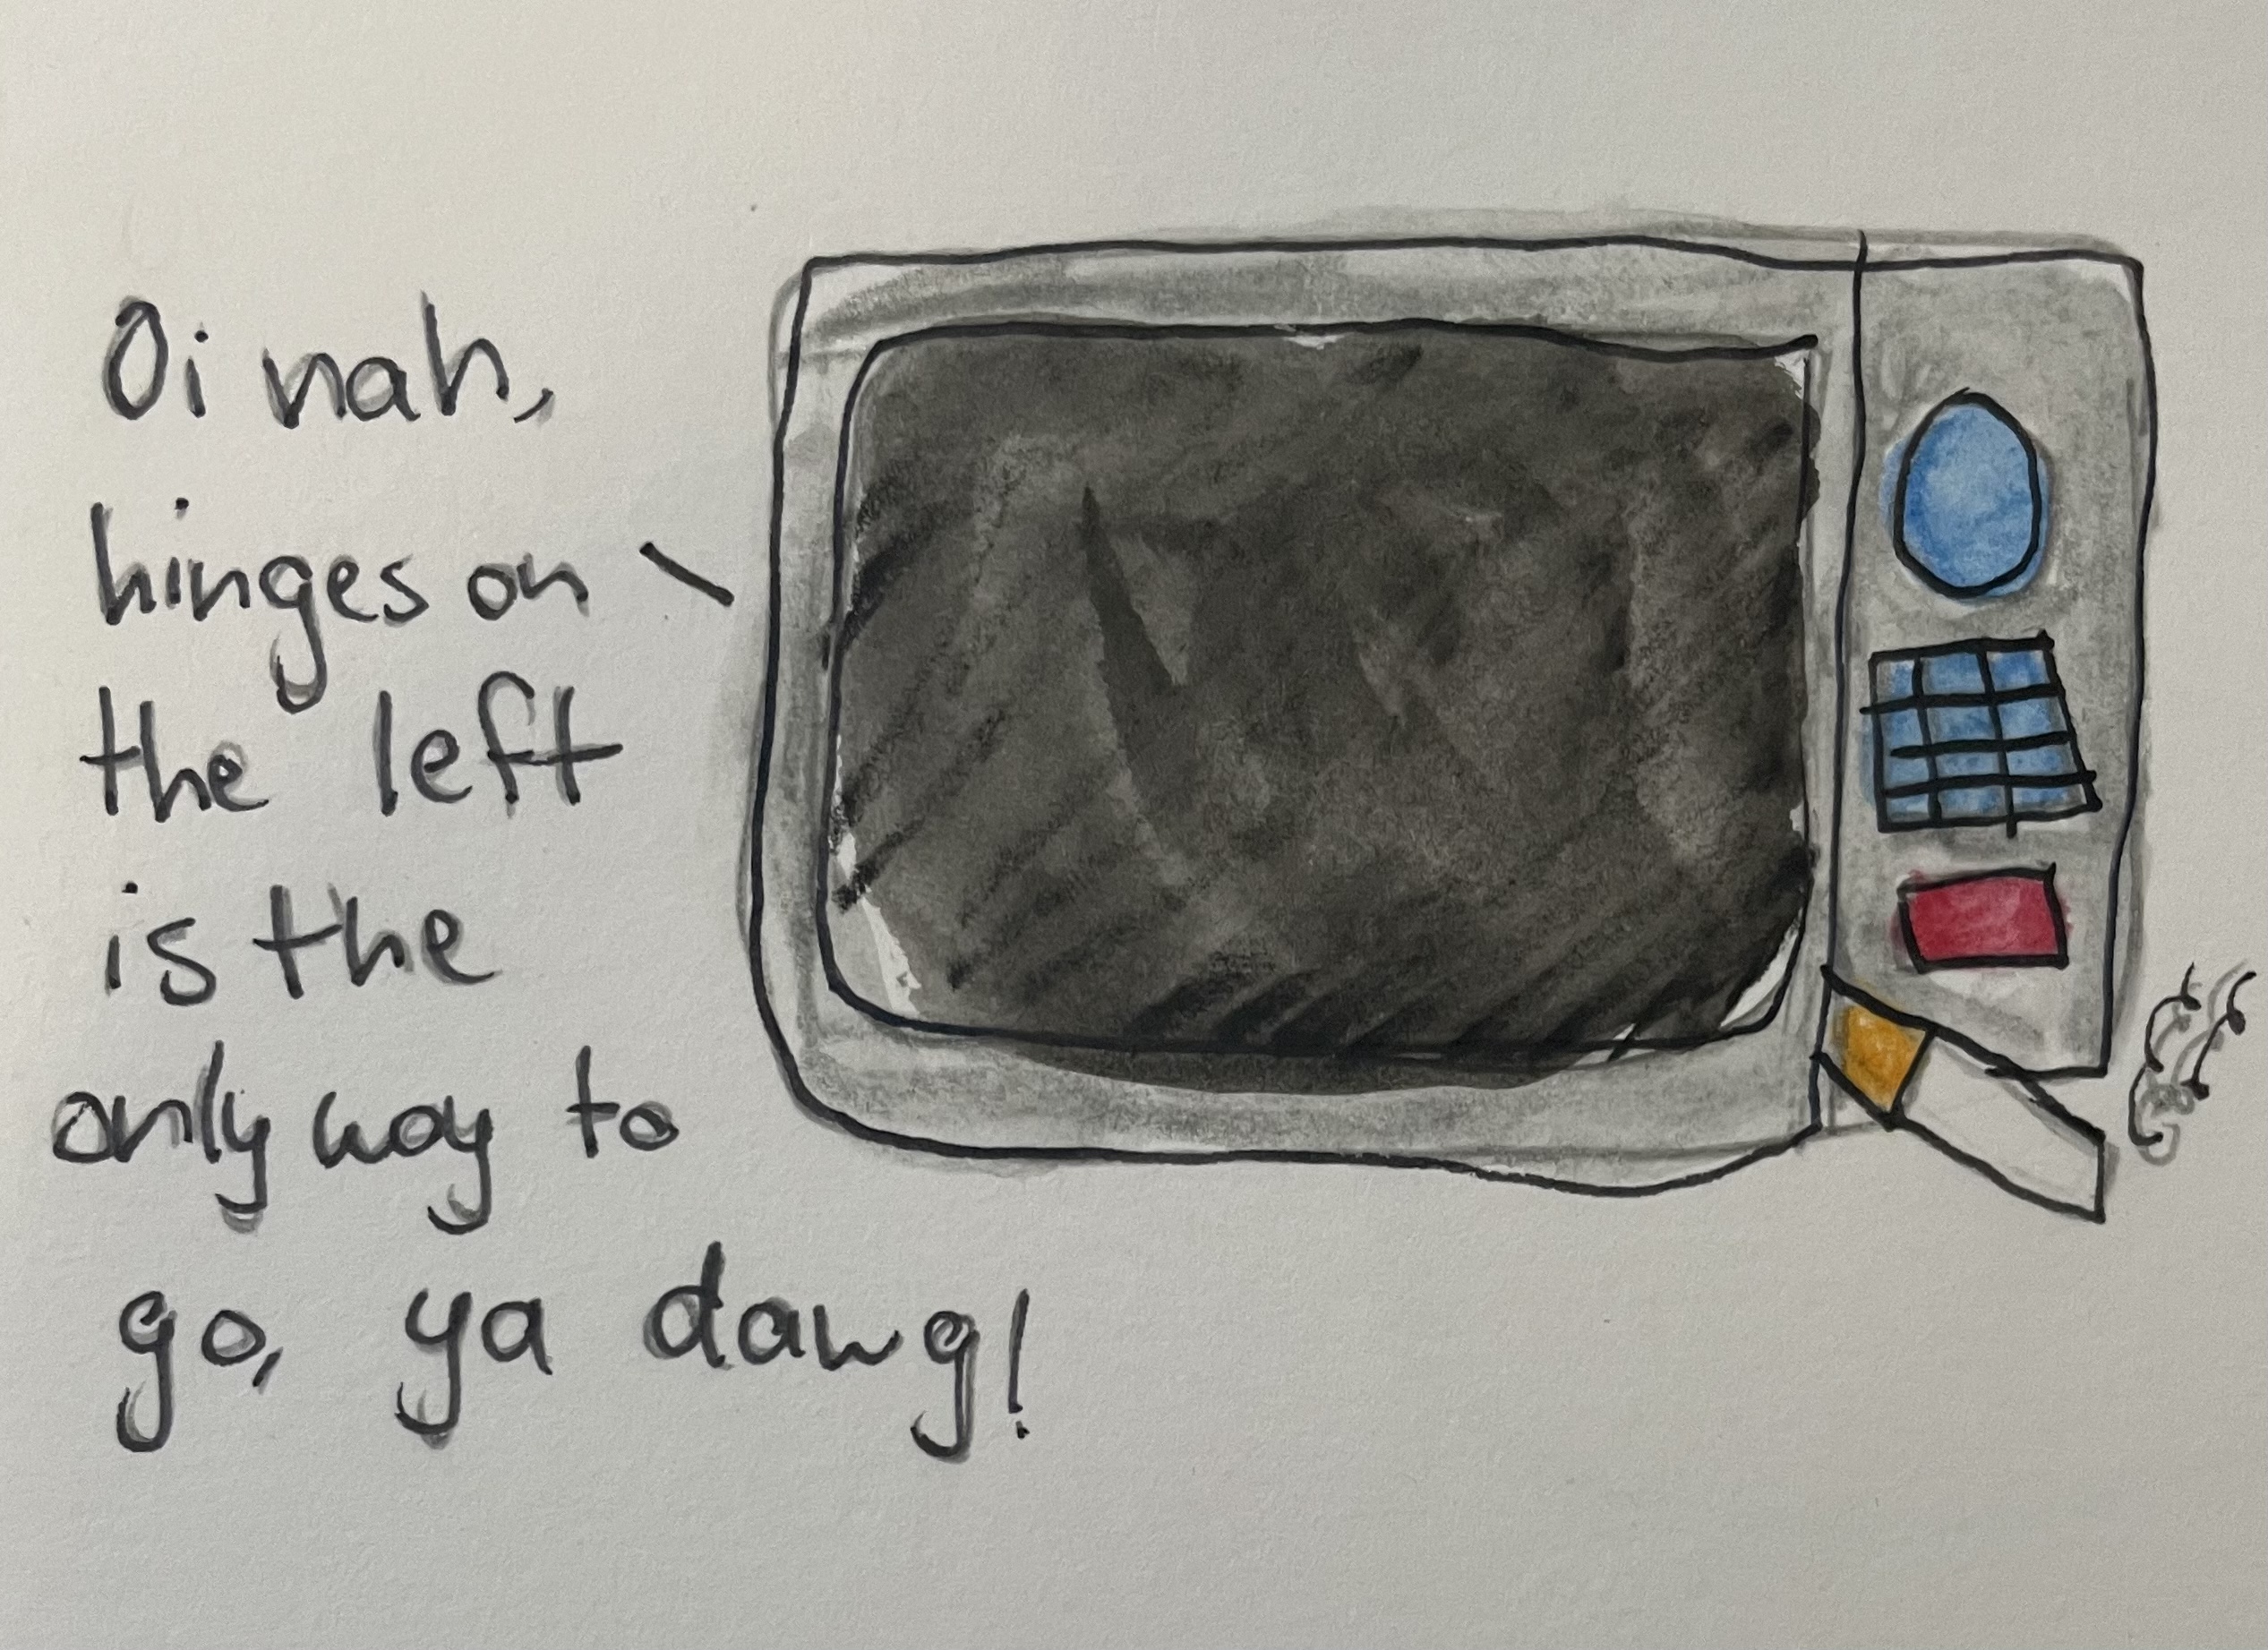 Oi nah,
hinges on
the left
is the
only way to
go, ya dawg!